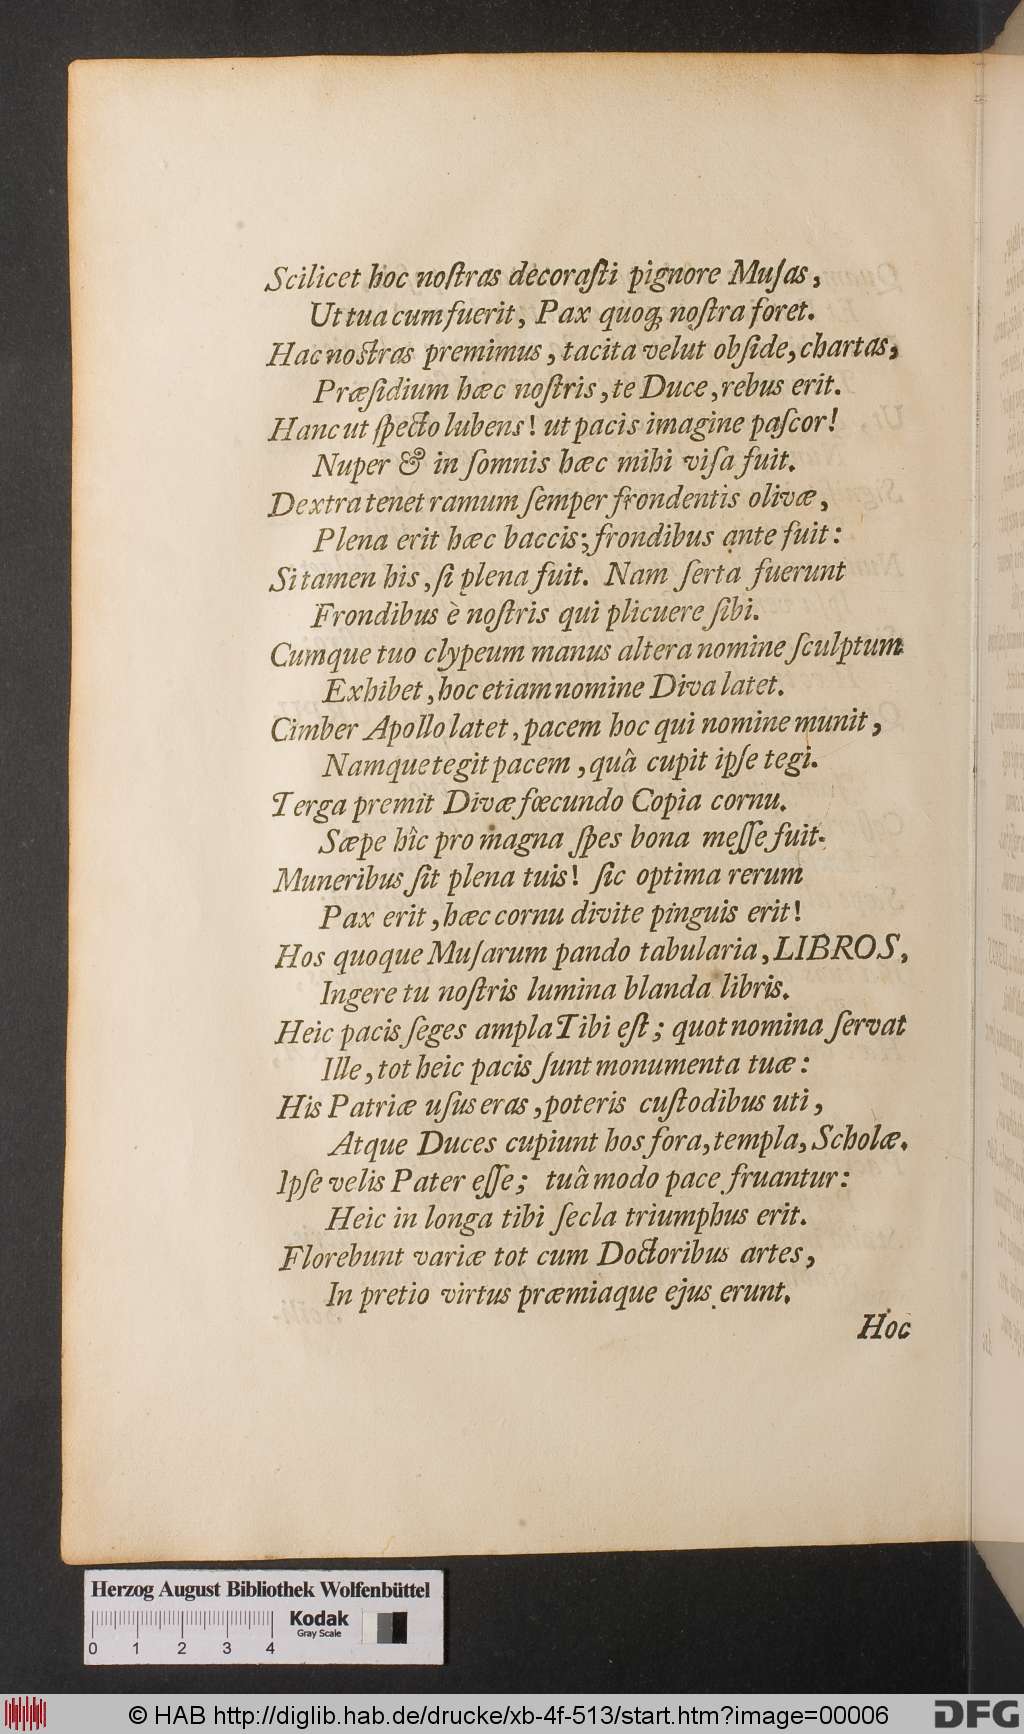 Scilicet hoc noſtras decoraſti pignore Muſas,
Ut tua cum fuerit, Pax quoq; noſtra foret.
Hac noſtras premimus, tacita velut obſide, chartas,
Præſidium hæc noſtris, te Duce, rebus erit.
Hanc ut ſpecto lubens! ut pacis imagine paſcor!
Nuper & in ſomnis hæc mihi viſa fuit.
Dextra tenet ramum ſemper frondentis olivæ,
Plena erit hæc baccis; frondibus ante fuit:
Si tamen his, ſi plena fuit. Nam ſerta fuerunt
Frondibus è noſtris qui plicuere ſibi.
Cumque tuo clypeum manus altera nomine ſculptum
Exhibet, hoc etiam nomine Diva latet.
Cimber Apollo latet, pacem hoc qui nomine munit,
Namque tegit pacem, quâ cupit ipſe tegi.
Terga premit Divæ fœcundo Copia cornu.
Sæpe hîc pro magna ſpes bona meſſe fuit.
Muneribus ſit plena tuis! ſic optima rerum
Pax erit, hæc cornu divite pinguis erit!
Hos quoque Muſarum pando tabularia, LIBROS,
Ingere tu noſtris lumina blanda libris.
Heic pacis ſeges ampla Tibi eſt; quot nomina ſervat
Ille, tot heic pacis ſunt monumenta tuæ:
His Patriæ uſus eras, poteris cuſtodibus uti,
Atque Duces cupiunt hos fora, templa, Scholæ.
Ipſe velis Pater eſſe; tuâ modo pace fruantur:
Heic in longa tibi ſecla triumphus erit.
Florebunt variæ tot cum Doctoribus artes,
In pretio virtus præmiaque ejus erunt.
Hoc
Herzog August Bibliothek Wolfenbüttel
Kodak
Gray Scale
0 1 2 3 4
© HAB http://diglib.hab.de/drucke/xb-4f-513/start.htm?image=00006
DFG